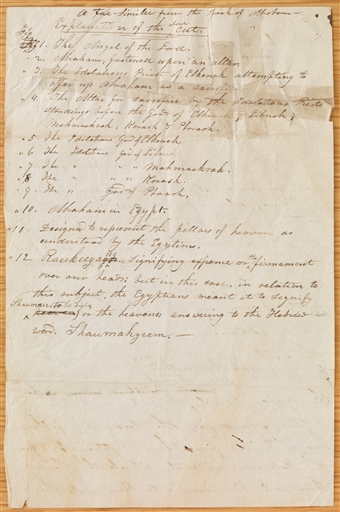 A Fac-Similee from the Book of Abraham
Explanation of the above Cut.
Fig. 1. The Angel of the Lord.
" 2. Abraham, fastened upon an altar.
" 3. The Idolatrous Priest of Elkenah attempting to
offer up Abraham as a sacrifice.
" 4. The Altar for sacrifice by the Idolatrous Priests
standing before the Gods of Elkenah, Libnah,
Mahmachrah, Korash, & Pharaoh.
" 5 The Idolatrous God of Elkenah
" 6 The Idolatrous God of Libnah
" 7 The " " " Mahmachrah.
" 8 The " " " Korash.
" 9 The " God of Pharaoh.
" 10. Abraham in Egypt.
" 11. Designed to represent the pillars of heaven as
understood by the Egyptians.
" 12 Raukeeyang, signifying expanse or the firmament
over our heads; but in this case, in relation to
this subject, the Egyptians meant it to signify
Shaumau, to be high,
or the heavens answering to the Hebrew
word, Shaumahyeem.—